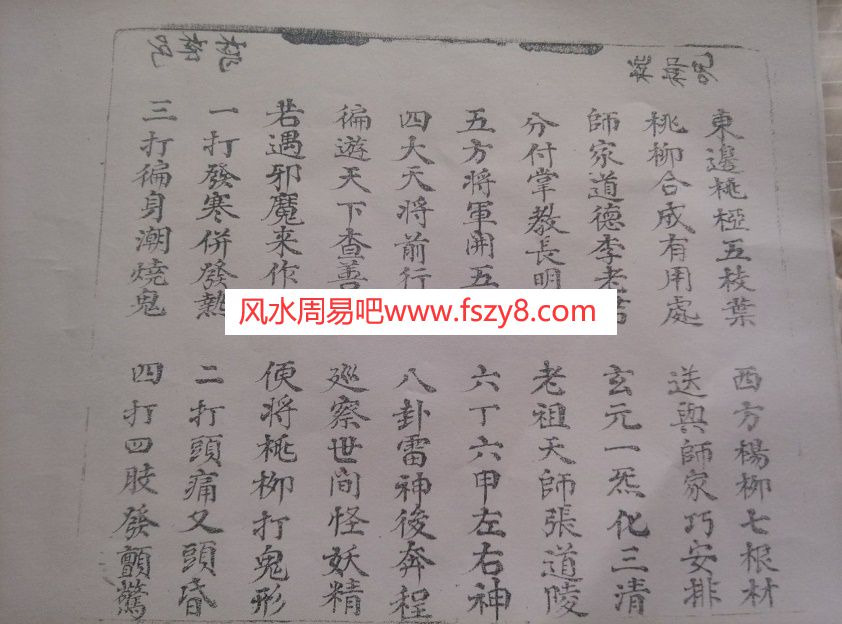 東邊桃椏五枝葉
西方楊柳七根材
桃柳合成有用處
送與師家巧安排
師家道德李老君
玄元一炁化三清
分付掌教長明
老祖天師張道陵
五方将軍開五
六丁六甲左右神
四大天将前行
八卦雷神後奔程
徧遊天下查善
廵察世间怪妖精
若遇邪魔来作
便将桃柳打鬼形
一打發寒併發熱
二打頭痛又頭昏
三打徧身潮燒鬼
四打四肢發顫驚
桃柳咒
风水周易吧www.fszy8.com